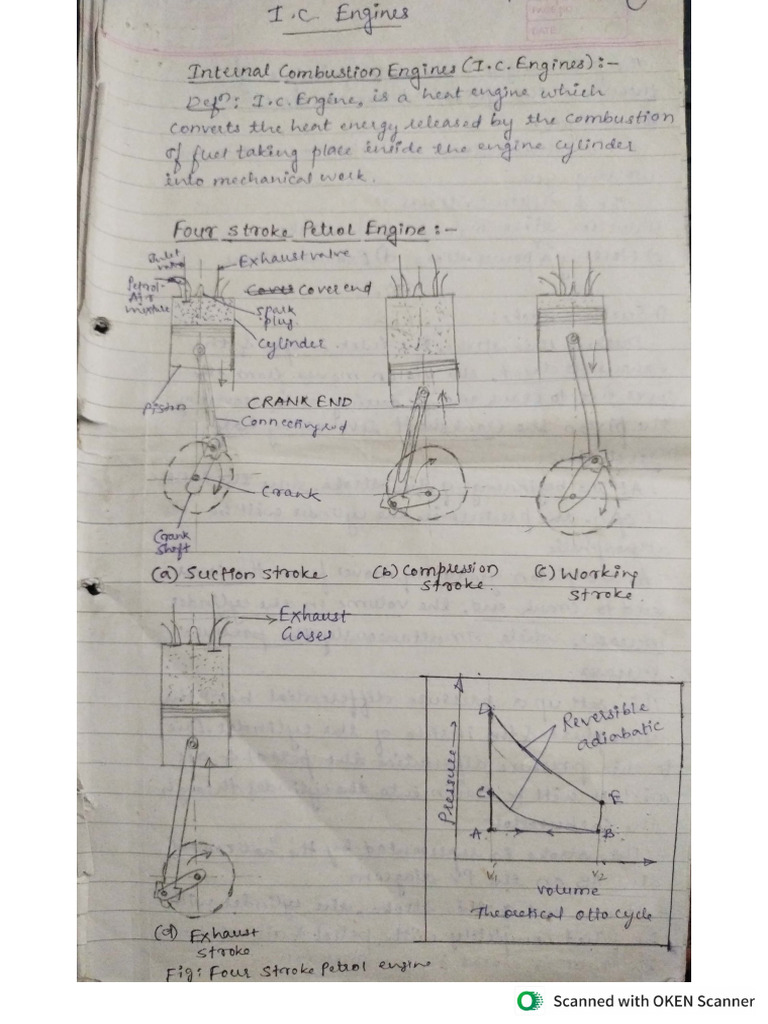 I.C. Engines
PAGE NO.
DATE
Internal Combustion Engines (I.C. Engines) :-
Defn: I.C. Engine, is a heat engine which
converts the heat energy released by the combustion
of fuel taking place inside the engine cylinder
into mechanical work.
Four stroke Petrol Engine :-
Inlet
valve
Exhaust valve
Petrol-
Air
mixture
Cover end
spark
plug
Cylinder
Piston
CRANK END
Connecting rod
Crank
Crank
shaft
(a) Suction stroke
(b) Compression
stroke.
(c) Working
stroke.
Exhaust
Gases
(d) Exhaust
stroke
Fig: Four stroke Petrol engine
Pressure
D
Reversible
adiabatic
C
E
A
B
V1
V2
volume
Theoretical otto cycle
Scanned with OKEN Scanner